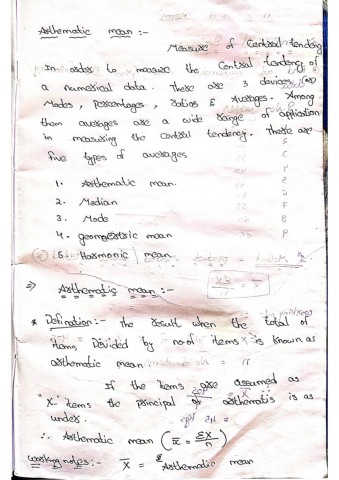 Arthematic mean :-
Measure of Central tendency
In order to measure the Central tendency of
a numerical data. There are 3 devices (or)
Modes, Percentages, Ratios & Averages. Among
them averages are a wide range of application
in measuring the central tendency. There are
five types of averages
1. Arthematic mean.
2. Median
3. Mode
4. geometric mean
5. Harmonic mean
⇒ Arthematic mean :-
* Defination :- the result when the total of
items Divided by no of items X is known as
arthematic mean.
If the items are assumed as
"X" items the principal of arthematis is as
under.
∴ Arthematic mean (x̅ = ΣX/n)
Working notes :- X̅ = Arthematic mean